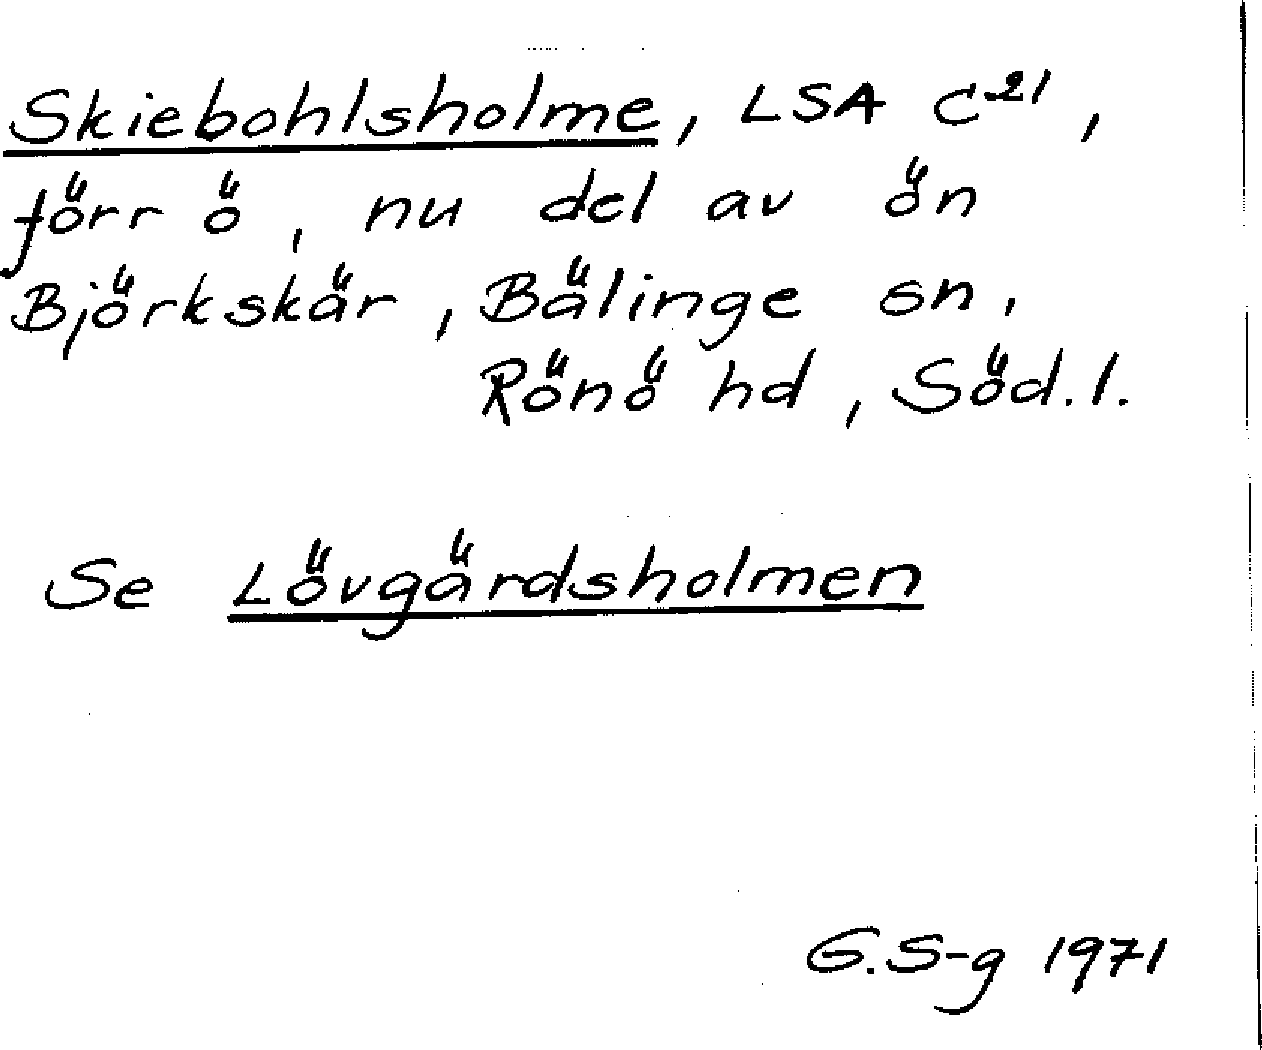 Skiebohlsholme, LSA C²¹,
förr ö, nu del av ön
Björkskär, Bälinge sn,
Rönö hd, Söd.l.
Se Lövgärdsholmen
G.S-g 1971